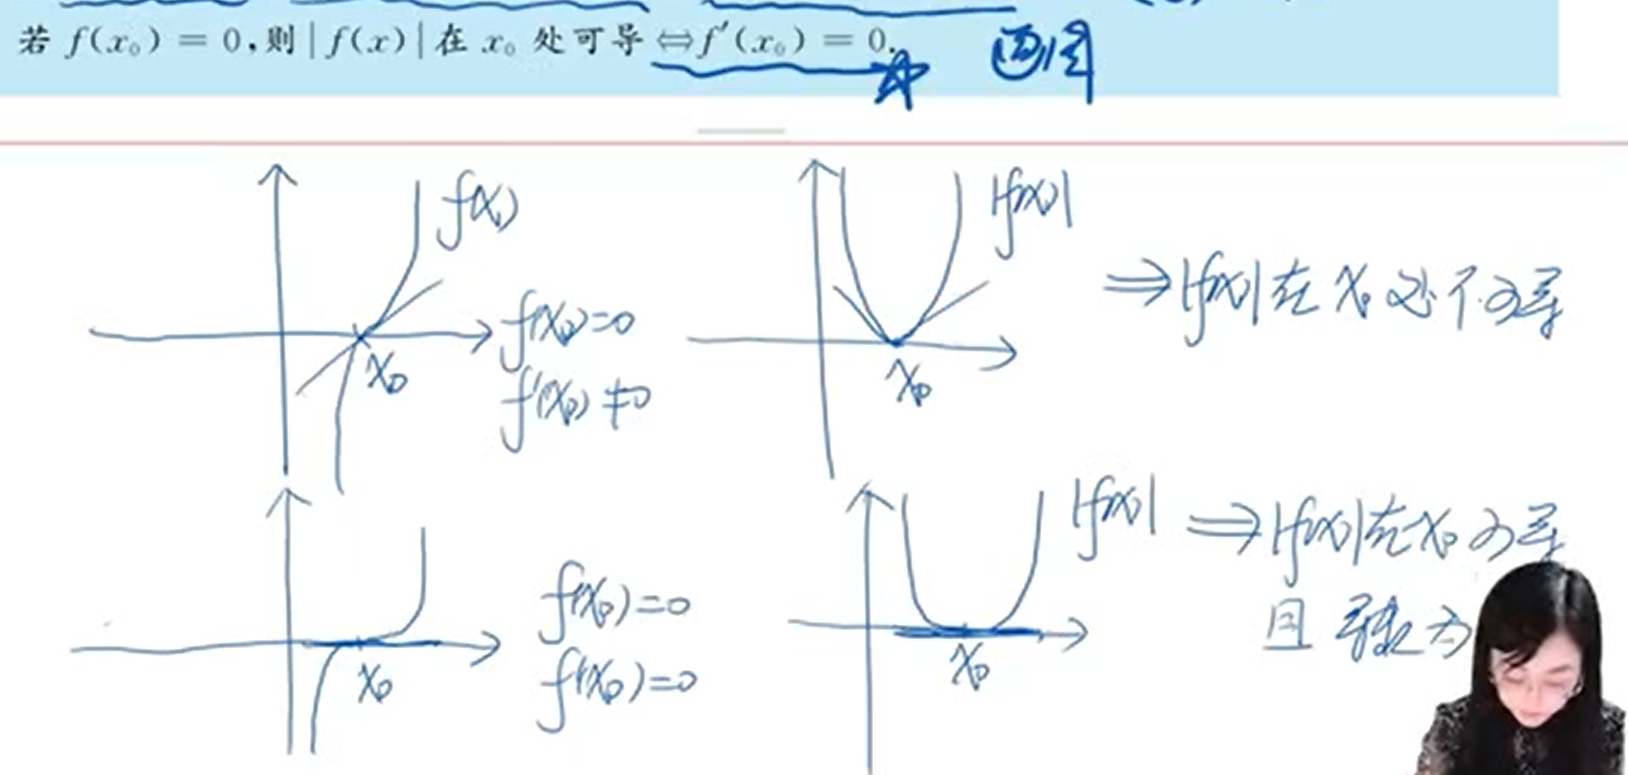 若 f(x₀) = 0,则|f(x)|在 x₀ 处可导⇔f′(x₀) = 0.
画图
f(x)
x₀
f(x₀)=0
f′(x₀)≠0
|f(x)|
x₀
⇒|f(x)|在 x₀ 处不可导
x₀
f(x₀)=0
f′(x₀)=0
|f(x)|
x₀
⇒|f(x)|在x₀可导
且 导数为